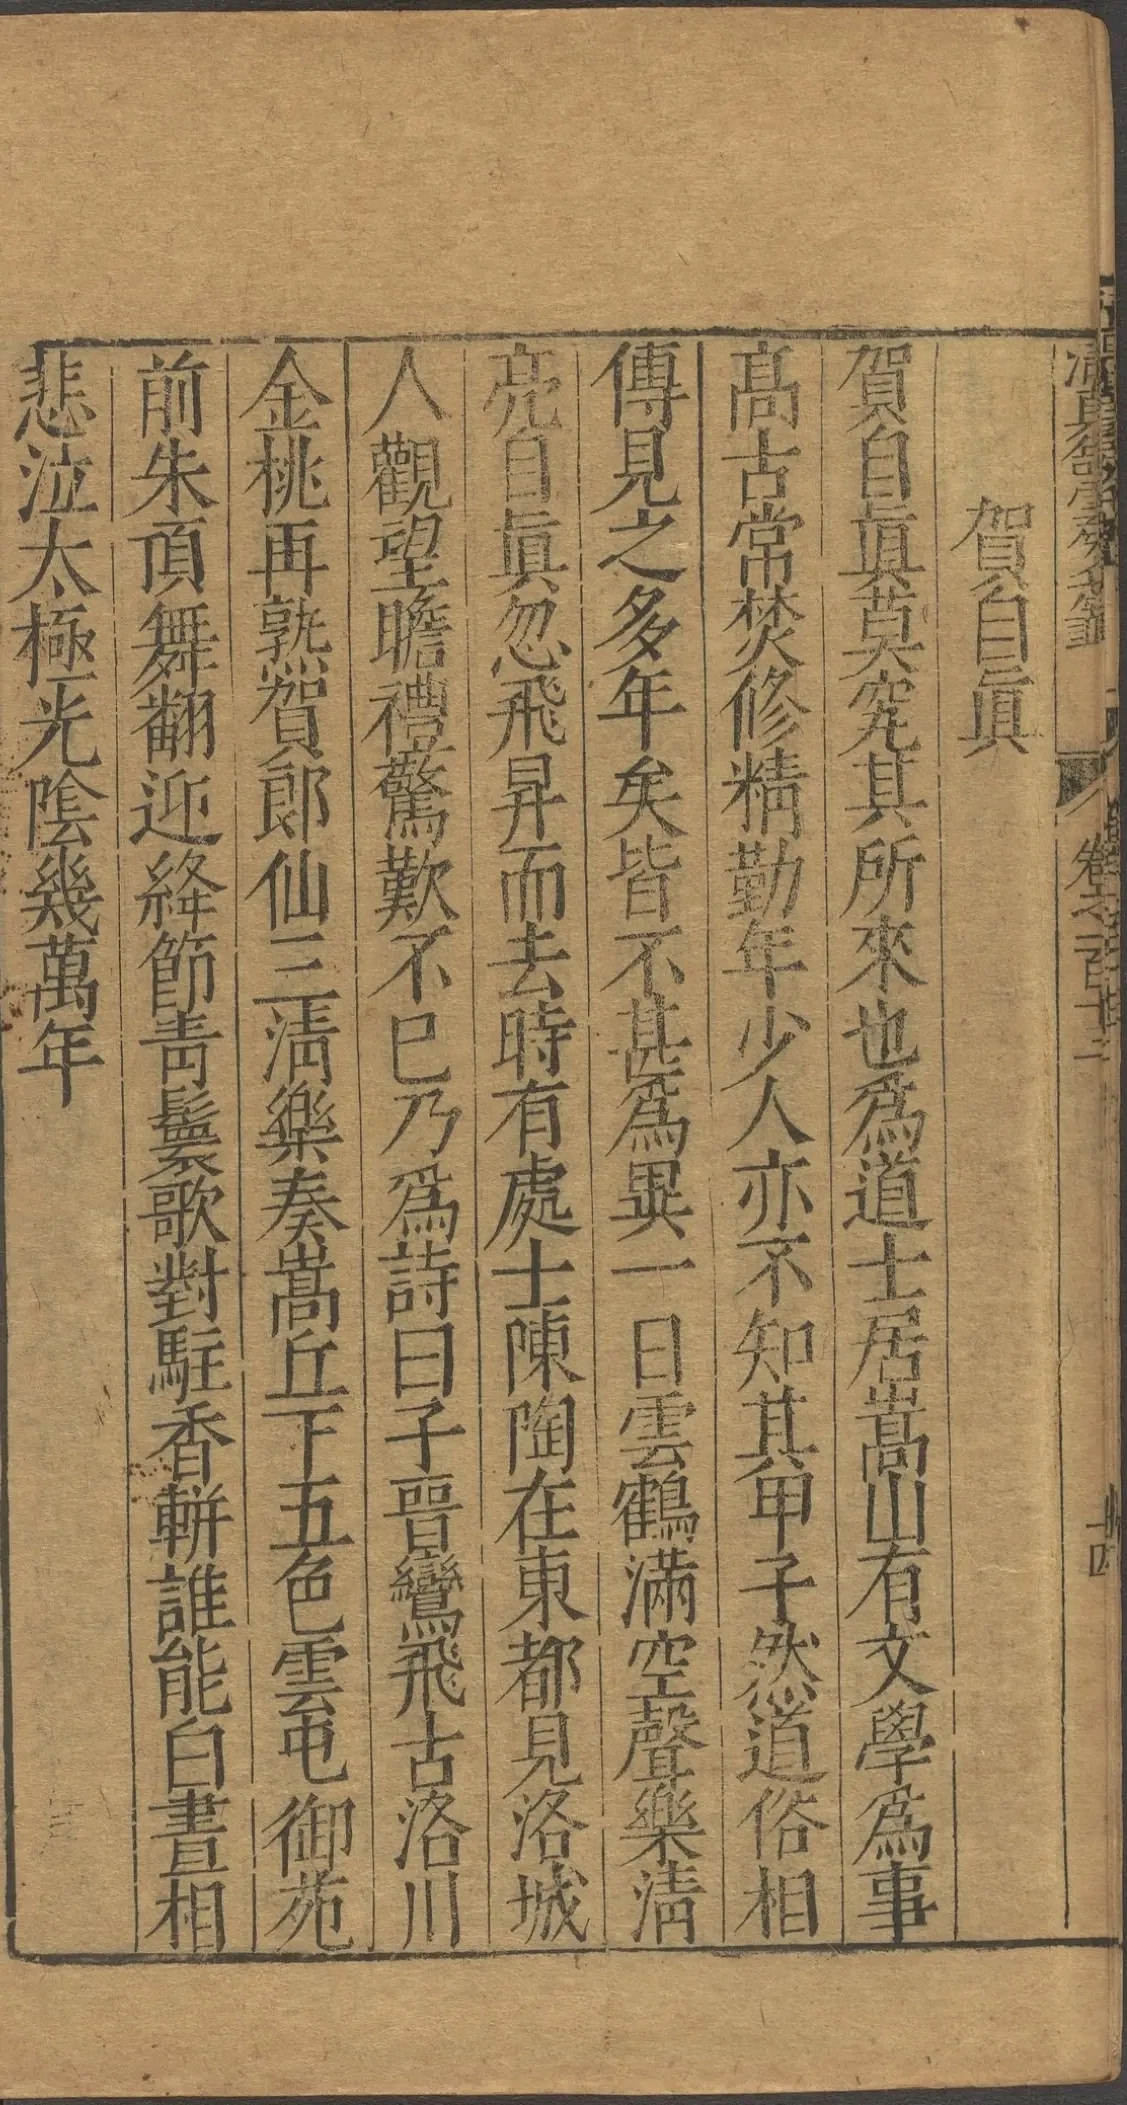 賀自眞
賀自眞莫究其所來也爲道士居嵩山有文學爲事
髙古常焚修精勤年少人亦不知其甲子然道俗相
傳見之多年矣皆不甚爲異一日雲鶴滿空聲樂淸
亮自眞忽飛昇而去時有處士陳陶在東都見洛城
人觀望瞻禮驚歎不巳乃爲詩曰子晉鸞飛古洛川
金桃再熟賀郎仙三淸樂奏嵩丘下五色雲屯御苑
前朱頂舞翻迎絳節靑鬟歌對駐香輧誰能白晝相
悲泣太極光陰幾萬年